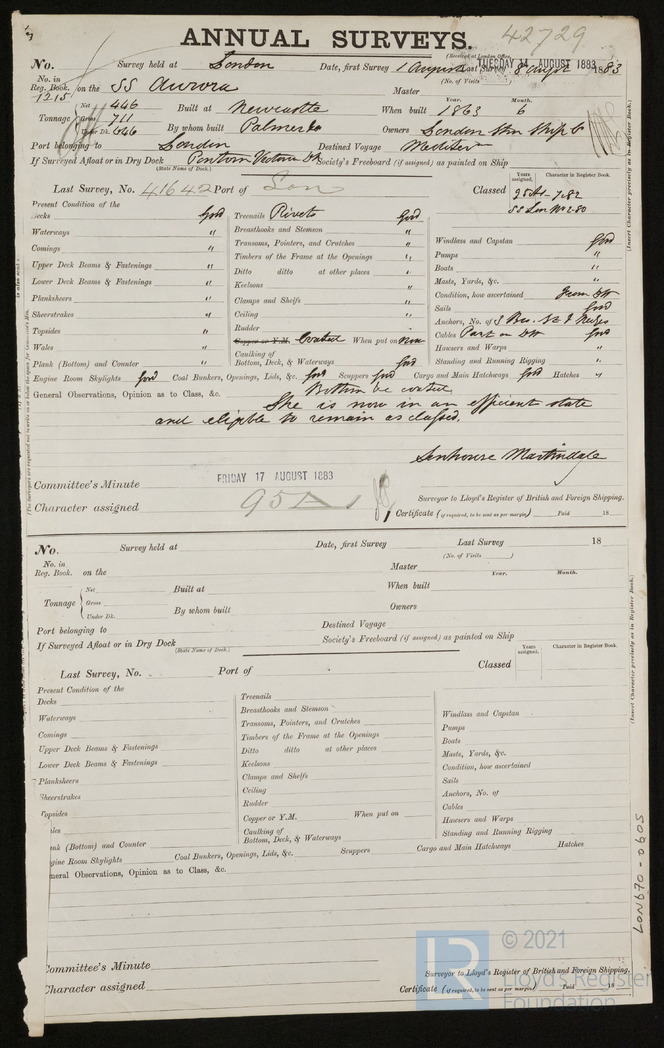 42729
ANNUAL SURVEYS.
(Received at London Office,
No. Survey held at London Date, first Survey 1 August Last Survey 8 August 1883
TUESDAY 14 AUGUST 1883
(No. of Visits )
No. in Reg. Book. 1215 on the SS Aurora Master
Tonnage { Net 446 Gross 711 Under Dk. 646 Built at Newcastle When built Year. 1863 Month. 6
By whom built Palmer & Co Owners London Stm Ship Co
Port belonging to London Destined Voyage Mediter
If Surveyed Afloat or in Dry Dock Victoria Dk Society's Freeboard (if assigned) as painted on Ship
(State Name of Dock.)
Last Survey, No. 41642 Port of Lon Classed Years assigned. Character in Register Book.
95A1 7.82
SS Lon No 2-80
Present Condition of the
Decks good
Waterways "
Comings "
Upper Deck Beams & Fastenings "
Lower Deck Beams & Fastenings "
Planksheers "
Sheerstrakes "
Topsides "
Wales "
Plank (Bottom) and Counter "
Treenails Rivets good
Breasthooks and Stemson "
Transoms, Pointers, and Crutches "
Timbers of the Frame at the Openings "
Ditto ditto at other places "
Keelsons "
Clamps and Shelfs "
Ceiling "
Rudder "
Copper or Y.M. Coated When put on now
Caulking of Bottom, Deck, & Waterways good
Windlass and Capstan good
Pumps "
Boats "
Masts, Yards, &c. "
Condition, how ascertained from Dk
Sails good
Anchors, No. of 3 Bow. St &
Cables Part on Dk good
Hawsers and Warps "
Standing and Running Rigging "
Engine Room Skylights good Coal Bunkers, Openings, Lids, &c. good Scuppers good Cargo and Main Hatchways good Hatches "
General Observations, Opinion as to Class, &c. Bottom coated
She is now in an efficient state
and eligible to remain as classed.
Senhouse Martindale
Committee's Minute FRIDAY 17 AUGUST 1883
Surveyor to Lloyd's Register of British and Foreign Shipping.
Character assigned 95A1
Certificate (if required, to be sent as per margin) Paid 18
(Insert Character precisely as in Register Book.)
No. Survey held at Date, first Survey Last Survey 18
(No. of Visits )
No. in Reg. Book. on the Master
Year. Month.
Tonnage { Net Gross Under Dk. Built at When built
By whom built Owners
Port belonging to Destined Voyage
If Surveyed Afloat or in Dry Dock Society's Freeboard (if assigned) as painted on Ship
(State Name of Dock.)
Last Survey, No. Port of Classed Years assigned. Character in Register Book.
Present Condition of the
Decks
Waterways
Comings
Upper Deck Beams & Fastenings
Lower Deck Beams & Fastenings
Planksheers
Sheerstrakes
Topsides
ales
nk (Bottom) and Counter
Treenails
Breasthooks and Stemson
Transoms, Pointers, and Crutches
Timbers of the Frame at the Openings
Ditto ditto at other places
Keelsons
Clamps and Shelfs
Ceiling
Rudder
Copper or Y.M. When put on
Caulking of Bottom, Deck, & Waterways
Windlass and Capstan
Pumps
Boats
Masts, Yards, &c.
Condition, how ascertained
Sails
Anchors, No. of
Cables
Hawsers and Warps
Standing and Running Rigging
gine Room Skylights Coal Bunkers, Openings, Lids, &c. Scuppers Cargo and Main Hatchways Hatches
neral Observations, Opinion as to Class, &c.
(Insert Character precisely as in Register Book.)
LON670-0605
Committee's Minute
Surveyor to Lloyd's Register of British and Foreign Shipping.
Character assigned
Certificate (if required, to be sent as per margin) Paid 18
LR © 2021
Lloyd's Register
Foundation